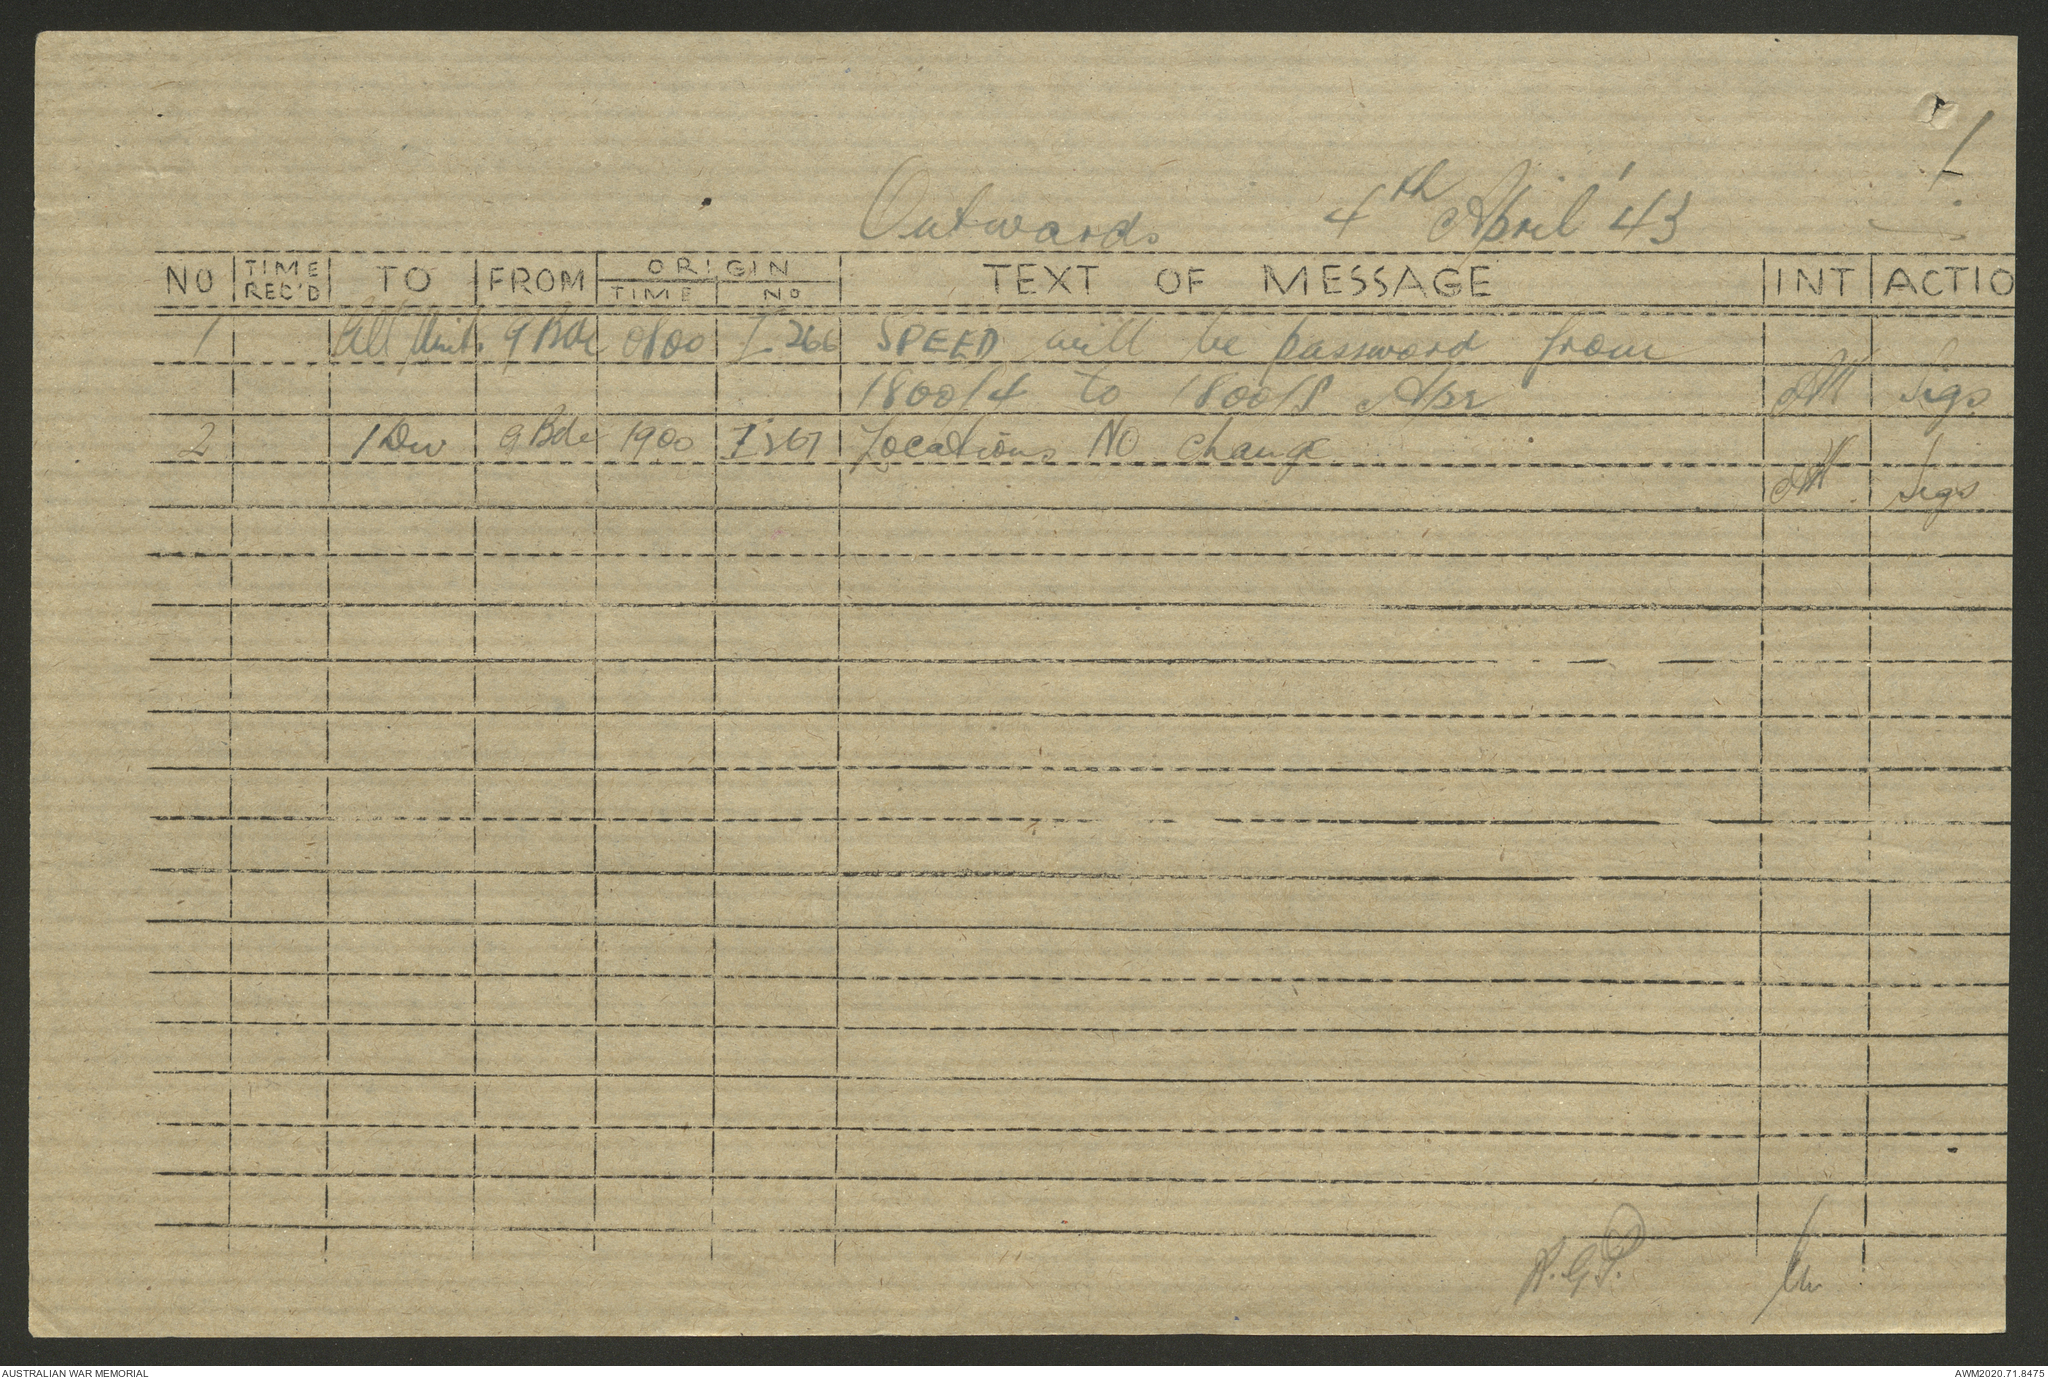 1
Outwards 4th April '43
NO TIME REC'D TO FROM ORIGIN TIME NO TEXT OF MESSAGE INT ACTIO
1 All Units 9 Bde 0800 I 266 SPEED will be password from
1800/4 to 1800/8 Apr Sigs
2 1 Div 9 Bde 1900 I 267 Locations NO change
Sigs
AUSTRALIAN WAR MEMORIAL AWM2020.71.8475